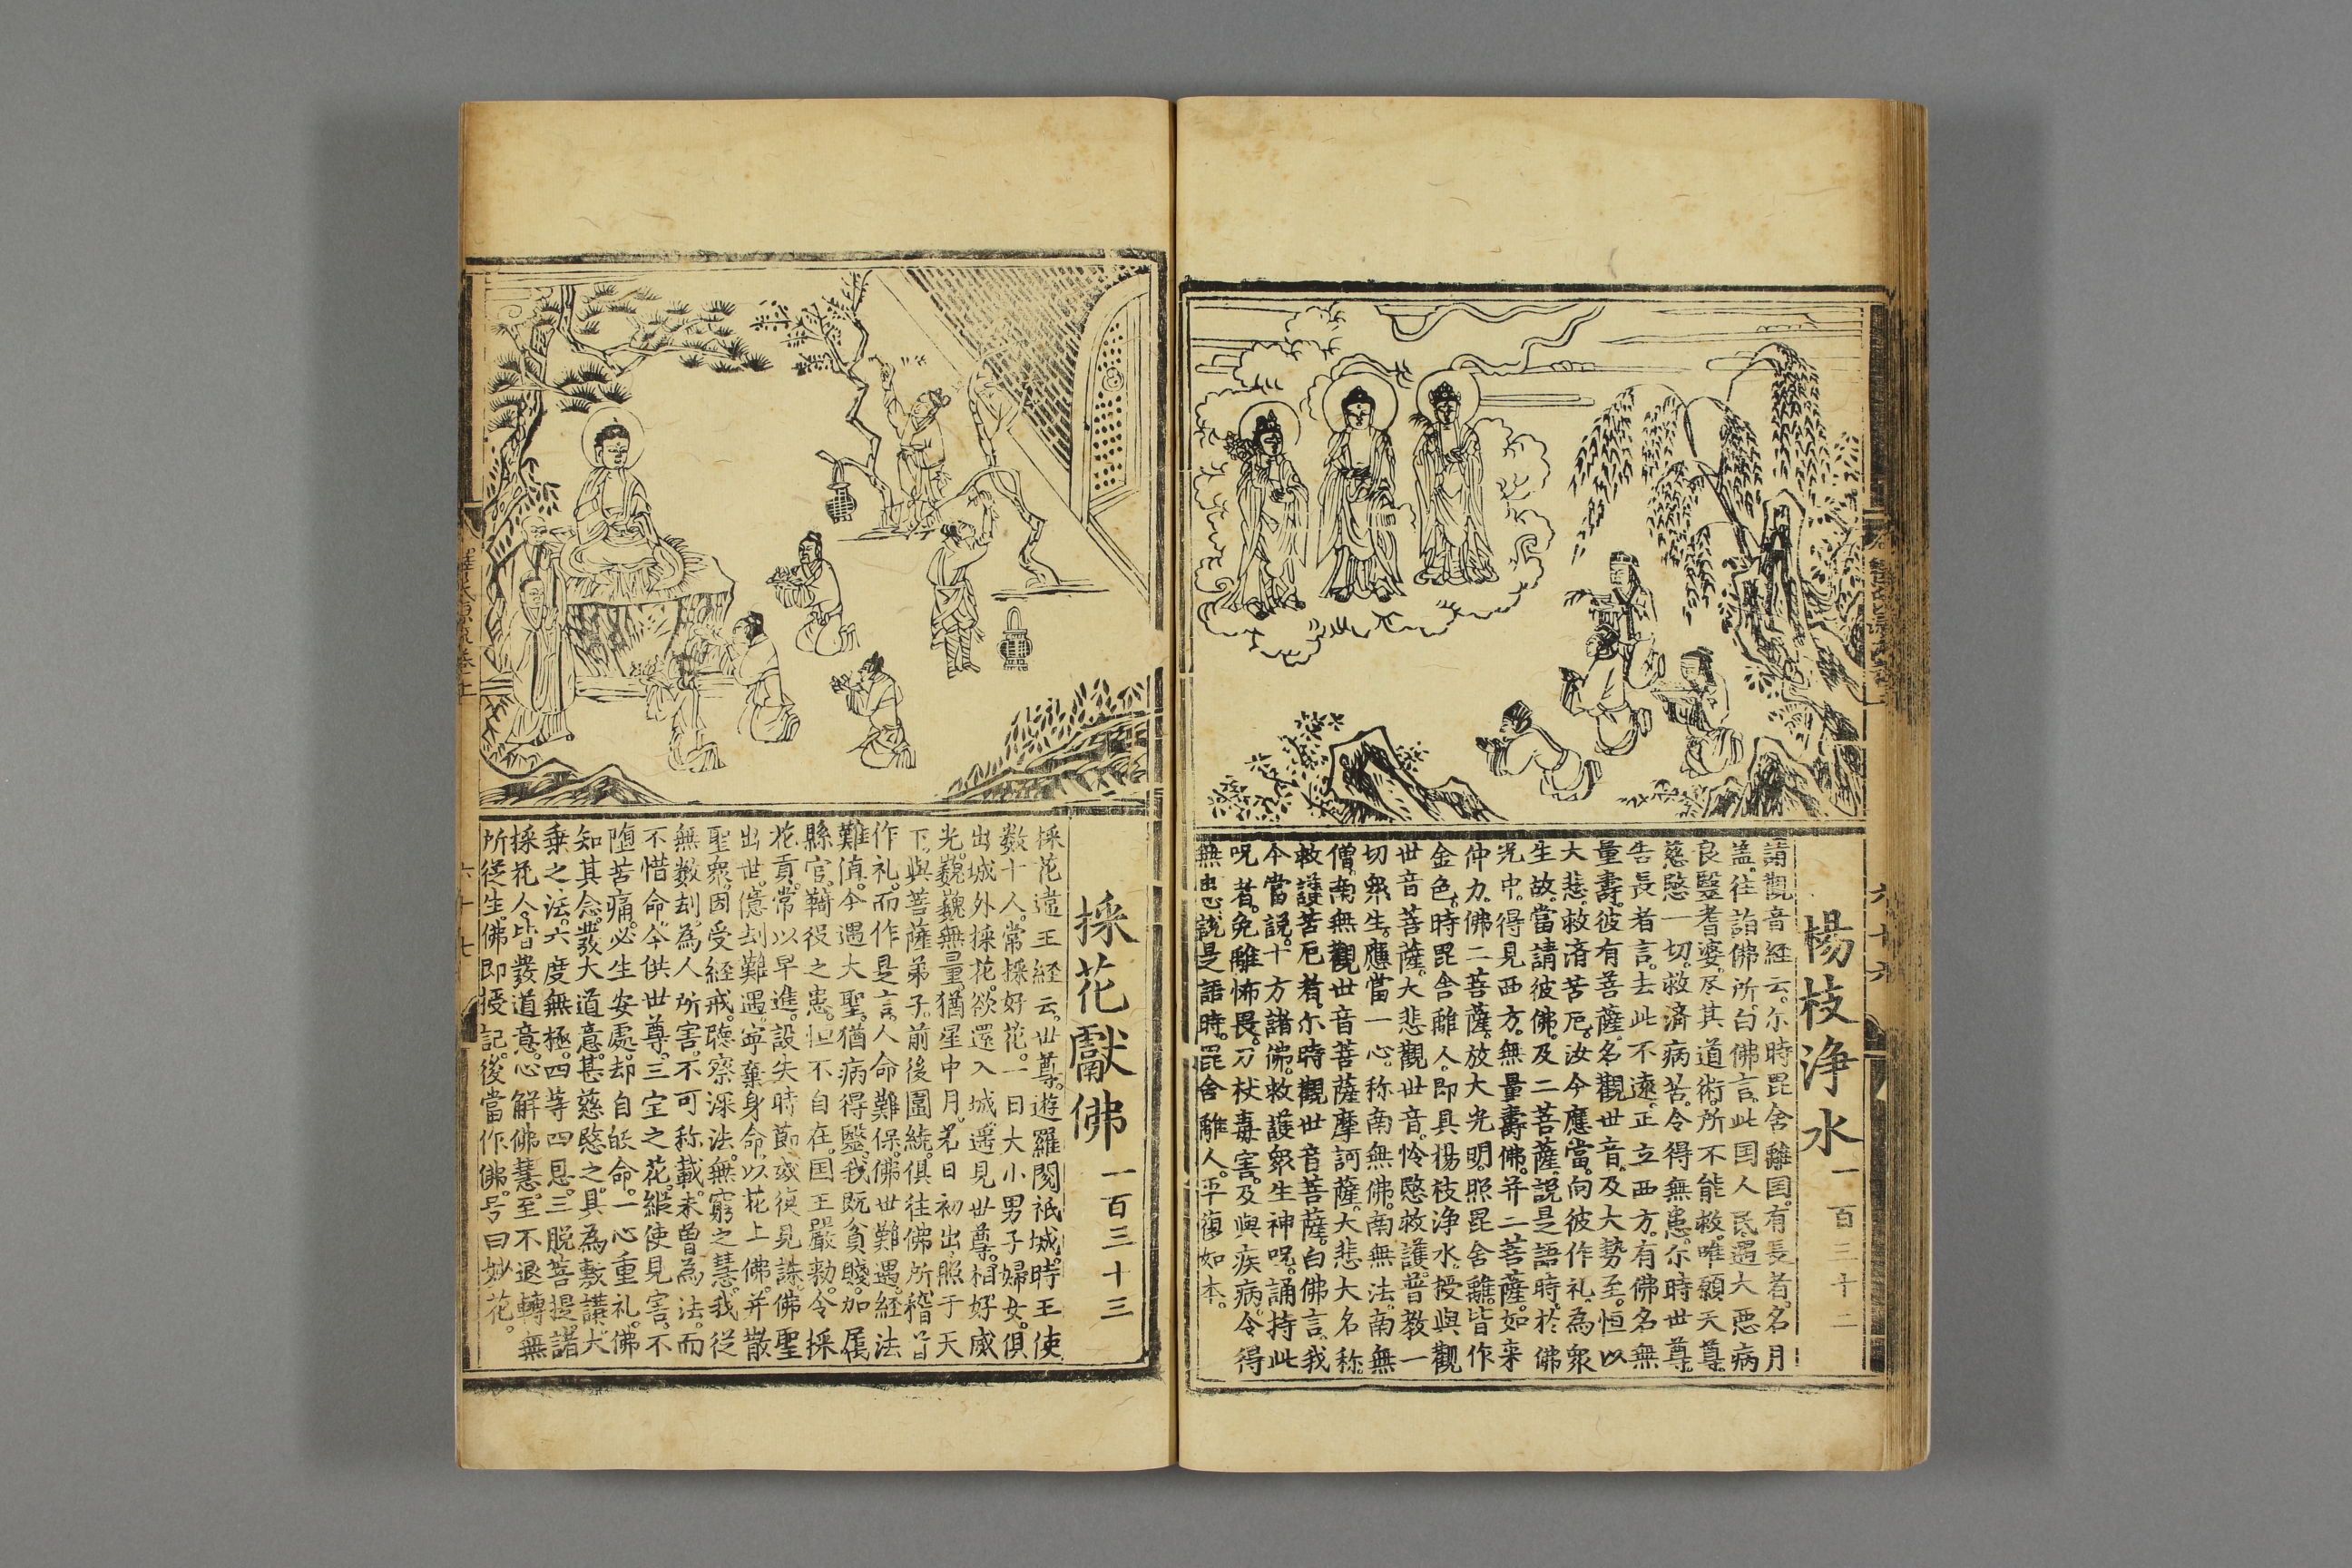 楊枝浄水 一百三十二
請觀音経云。尔時毘舍離国。有長者。名月
盖。往詣佛所。白佛言。此国人民。遇大悪病
良毉耆婆。尽其道術。所不能救。唯願天尊。
慈愍一切。救済病苦。令得無患。尔時世尊。
告長者言。去此不遠。正立西方。有佛名無
量壽。彼有菩薩。名觀世音。及大勢至。恒以
大悲。救済苦厄。汝今應當。向彼作礼。為衆
生故。當請彼佛。及二菩薩。說是語時。於佛
光中。得見西方。無量壽佛。并二菩薩。如来
仲力。佛二菩薩。放大光明。照毘舍離。皆作
金色。時毘舍離人。即具楊枝浄水。授與觀
世音菩薩。大悲觀世音。怜愍救護。普教一
切衆生。應當一心。称南無佛。南無法。南無
僧。南無觀世音菩薩摩訶薩。大悲大名称。
救護苦厄者。尓時觀世音菩薩。白佛言。我
今當説。十方諸佛。救護衆生神呪。誦持此
呪者。免離怖畏。刀杖毒害。及與疾病。令得
無患。說是語時。毘舍離人。平復如本。
六十六
採花獻佛 一百三十三
採花違王経云。世尊。遊羅閱祇城。時王使
数十人。常採好花。一日大小男子婦女。俱
出城外採花。欲還入城。遥見世尊。相好威
光。巍巍無量。猶星中月。若日初出。照于天
下。與菩薩弟子。前後圍繞。俱往佛所。稽首
作礼。而作是言。人命難保。佛世難遇。経法
難値。今遇大聖。猶病得毉。我既貧賤。加属
縣官。鞿役之患。怛不自在。国王嚴勅。令採
花貢。常以早進。設失時節。或復見誅。佛聖
出世。億刦難遇。寧棄身命。以花上佛。并散
聖衆。因受経戒。聴察深法。無窮之慧。我従
無数刦。為人所害。不可称載。未曾為法。而
不惜命。今供世尊。三宝之花。縦使見害。不
堕苦痛。必生安處。却自皈命。一心重礼。佛
知其念。發大道意。甚慈愍之。具為敷講大
乗之法。六度無極。四等四恩。三脱菩提。諸
採花人。皆發道意。心解佛慧。至不退轉。無
所従生。佛即授記。後當作佛。号曰妙花。
六十七